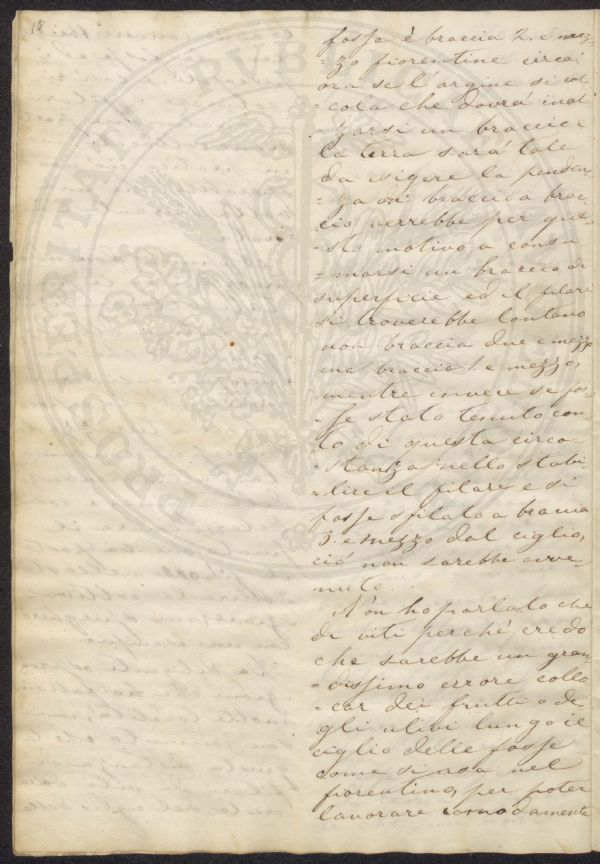 18
fosse è braccia 2. e mez-
=zo fiorentine circa
ora se l'argine si cal
=cola che dovrà inal
=zarsi un braccio e
la terra sarà tale
da esigere la penden-
=za di braccio a brac-
cio verrebbe per que-
sto motivo a consu
=marsi un braccio di
superficie ed il filare
si troverebbe lontano
non braccia due e mezzo
ma braccio 1. e mezzo,
mentre invece se fos-
=se stato tenuto con-
to di questa circo-
=stanza nello stabi
=lire il filare e si
fosse sfilato a braccia
3. e mezzo dal ciglio,
ciò non sarebbe avve-
nuto.
Non ho parlato che
di viti perché credo
che sarebbe un gran
=dissimo errore collo
=car dei frutti o de-
gli ulivi lungo il
ciglio delle fosse
come si usa nel
fiorentino, per poter
lavorare comodamente
PROSPERITATI PVBLICAE